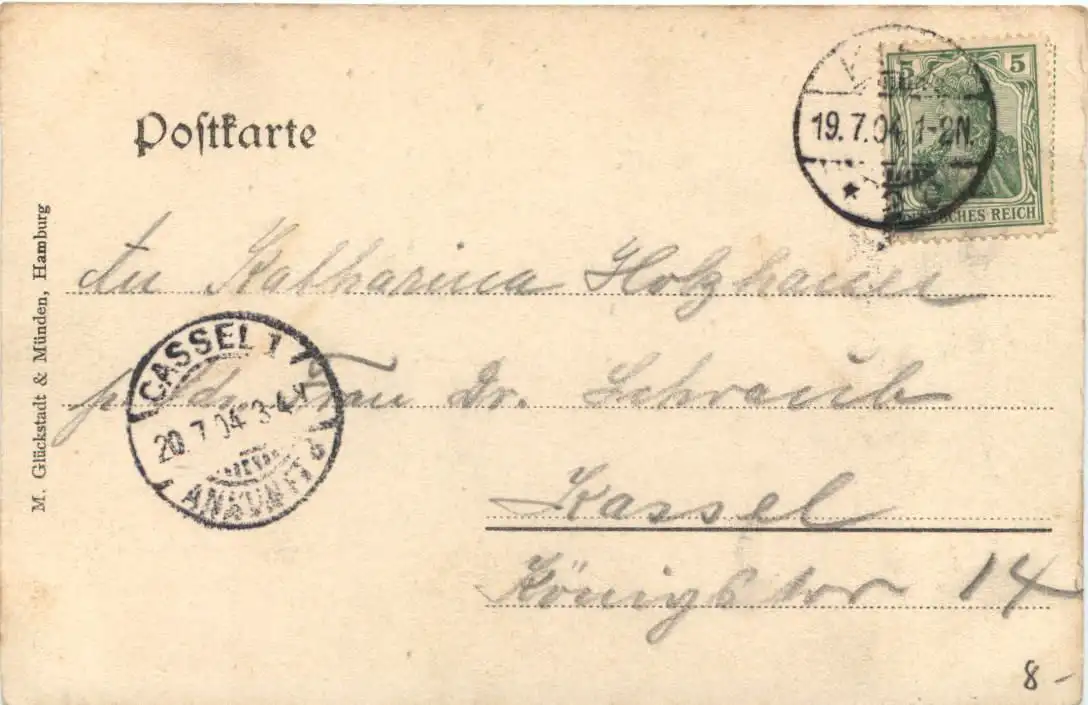 Postkarte
5 5
DEUTSCHES REICH
19.7.04. 1-2N.
M. Glückstadt & Münden, Hamburg
An Katharina Holzhauer
Frau Dr. Schraub
Kassel
Königstor 14
CASSEL 1
20.7.04 3-4N
ANKUNFT
8-